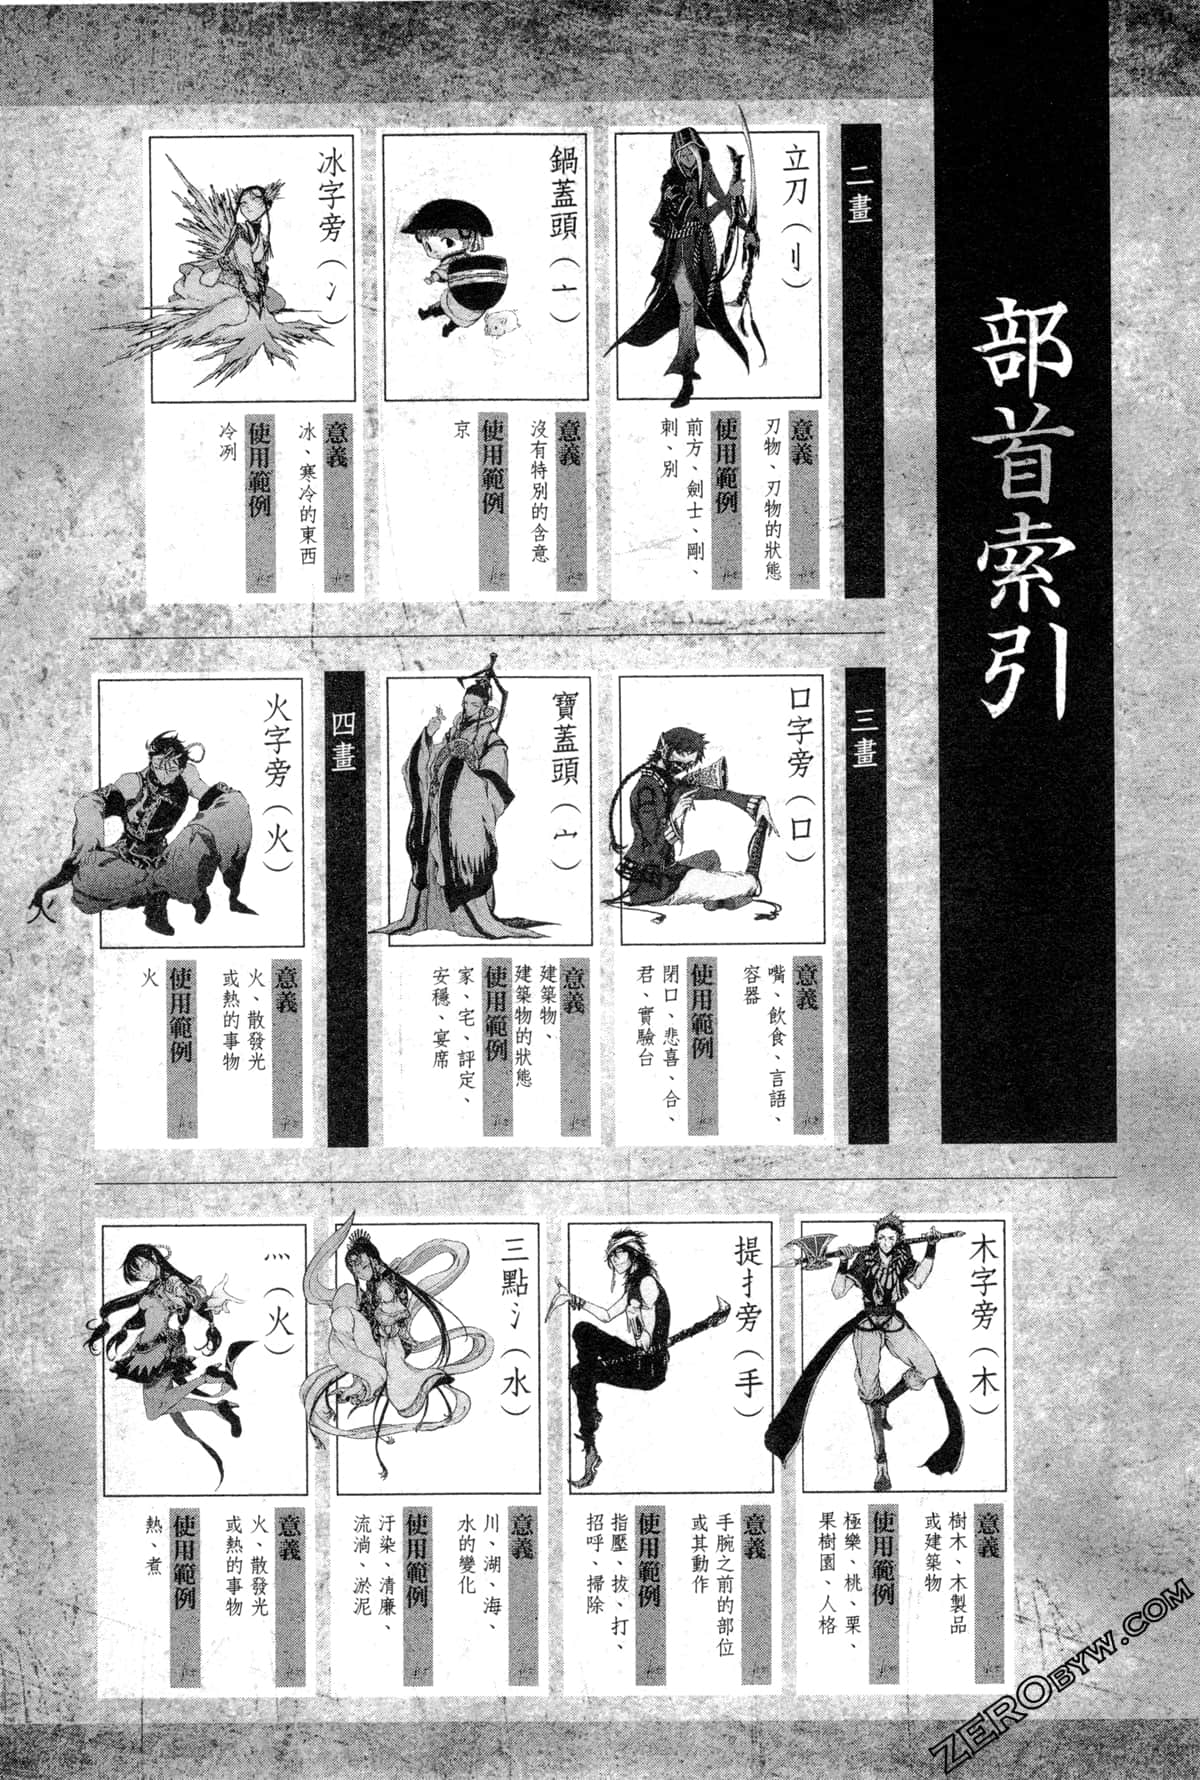 部首索引
二畫
立刀（刂）
意義
刃物、刃物的狀態
使用範例
前方、劍士、剛、
刺、別
鍋蓋頭（亠）
意義
沒有特別的含意
使用範例
京
冰字旁（冫）
意義
冰、寒冷的東西
使用範例
冷冽
三畫
口字旁（口）
意義
嘴、飲食、言語、
容器
使用範例
閉口、悲喜、合、
君、實驗台
寶蓋頭（宀）
意義
建築物、
建築物的狀態
使用範例
家、宅、評定、
安穩、宴席
四畫
火字旁（火）
意義
火、散發光
或熱的事物
使用範例
火
木字旁（木）
意義
樹木、木製品
或建築物
使用範例
極樂、桃、栗、
果樹園、人格
提扌旁（手）
意義
手腕之前的部位
或其動作
使用範例
指壓、拔、打、
招呼、掃除
三點氵（水）
意義
川、湖、海、
水的變化
使用範例
汙染、清廉、
流淌、淤泥
灬（火）
意義
火、散發光
或熱的事物
使用範例
熱、煮
ZEROBYW.COM